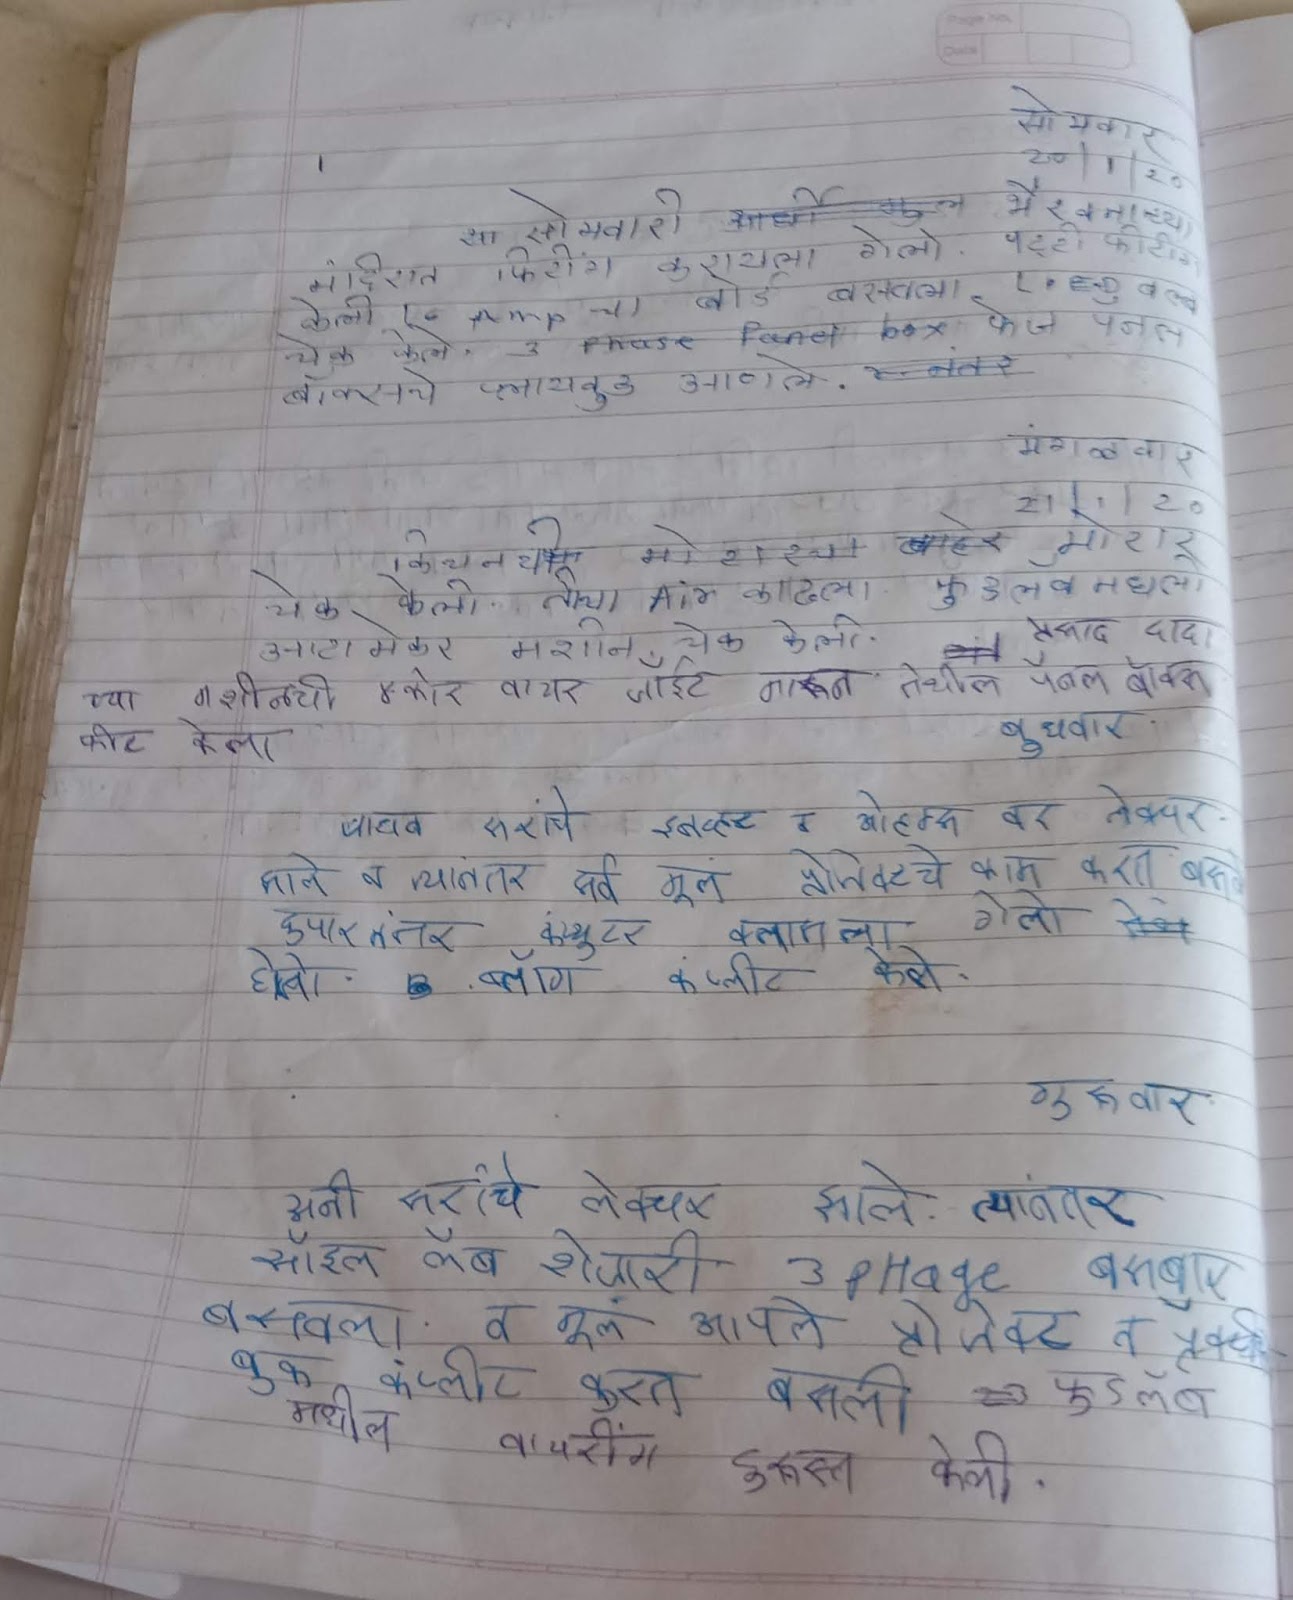 Page No.
Date
सोमवार
20/1/20
या सोमवारी भैरवनाथच्या
मंदिरात फिटींग करायला गेलो. पट्टी फीटींग
केली pump चा बोर्ड बसवला. LED बल्ब
चेक केले. 3 phase Panel box फेज पॅनल
बॉक्सचे प्लायवुड आणले.
मंगळवार
21/1/20
किचनची मोटार
चेक केली. तीचा Air काढला. फुडलॅब मधला
आटामेकर मशीन चेक केली. प्रसाद दादा
च्या मशीनची ४कोर वायर जॉईंट मारून तेथील पॅनल बॉक्स
फीट केला
बुधवार.
जाधव सरांचे व ओहमस वर लेक्चर
झाले व त्यांनतर सर्व मूलं प्रोजेक्टचे काम करत बसले
दुपारनंतर कंप्युटर क्लासला गेलो
होतो. ब्लॉग कंप्लीट केले.
गुरूवार.
अनी सरांचे लेक्चर झाले. त्यांनतर
सॉइल लॅब शेजारी 3 pHage बसबार
बसवला. व मूलं आपले प्रोजेक्ट व
बुक कंप्लीट करत बसली फुडलॅब
मधील वायरींग दुरूस्त केली.